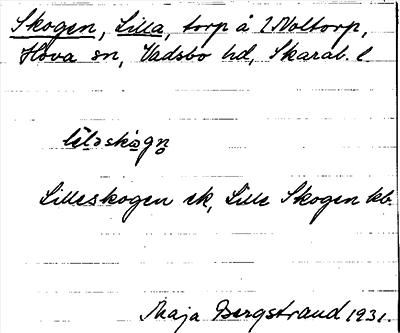 Skogen, Lilla, torp å 1 Noltorp,
Hova sn, Vadsbo hd, Skarab. l.
Lilleskogen ek, Lille Skogen kb.
Maja Bergstrand 1931.